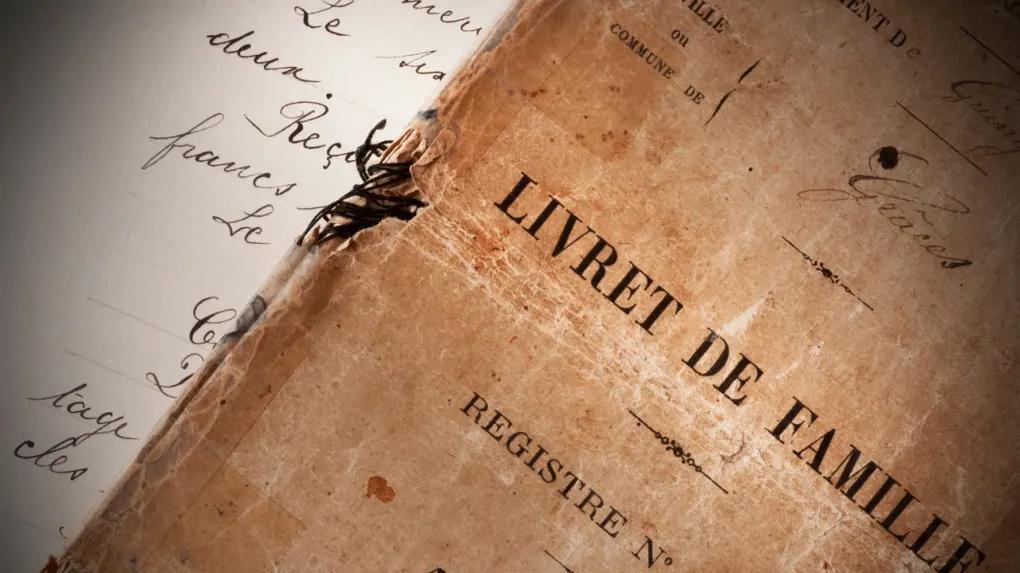 Le
deux.
Reçu
francs
Le
tage
cles
VILLE
ou
COMMUNE DE
MENT De
Grâces
LIVRET DE FAMILLE
REGISTRE Nº